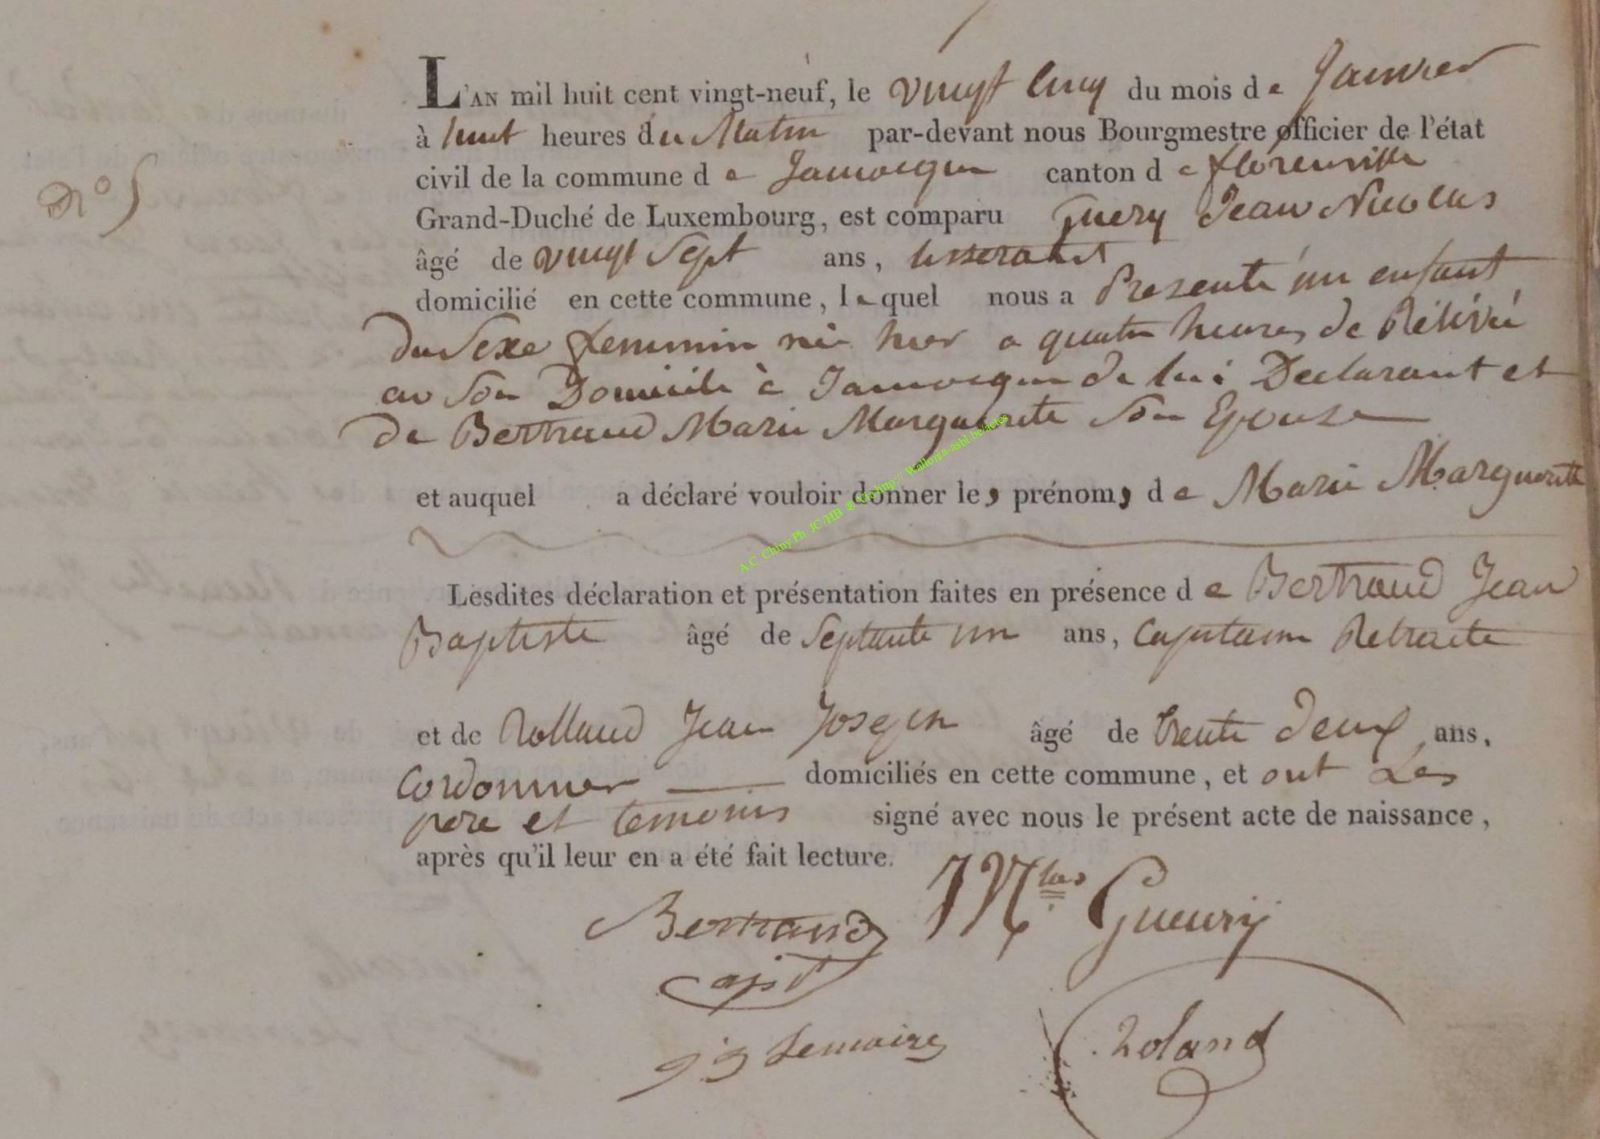 N° 5
L'AN mil huit cent vingt-neuf, le vingt cinq du mois de Janvier
à huit heures du Matin par-devant nous Bourgmestre officier de l'état
civil de la commune de Jamoigne canton de florenville
Grand-Duché de Luxembourg, est comparu Guery Jean Nicolas
âgé de vingt Sept ans, tisserand
domicilié en cette commune, lequel nous a Presenté un enfant
du Sexe feminin né hier a quatre heures de Rélévée
en Son Domicile à Jamoigne de lui Declarant et
de Bertrand Marie Marguerite Son Epouse
et auquel a déclaré vouloir donner les prénoms de Marie Marguerite
Lesdites déclaration et présentation faites en présence de Bertrand Jean
Baptiste âgé de Septante un ans, Capitaine Retraite
et de Rolland Jean Joseph âgé de trente deux ans,
Cordonnier domiciliés en cette commune, et ont Les
père et temoins signé avec nous le présent acte de naissance,
après qu'il leur en a été fait lecture.
Bertrand JNlas Gueury
capt
Lemaire Roland